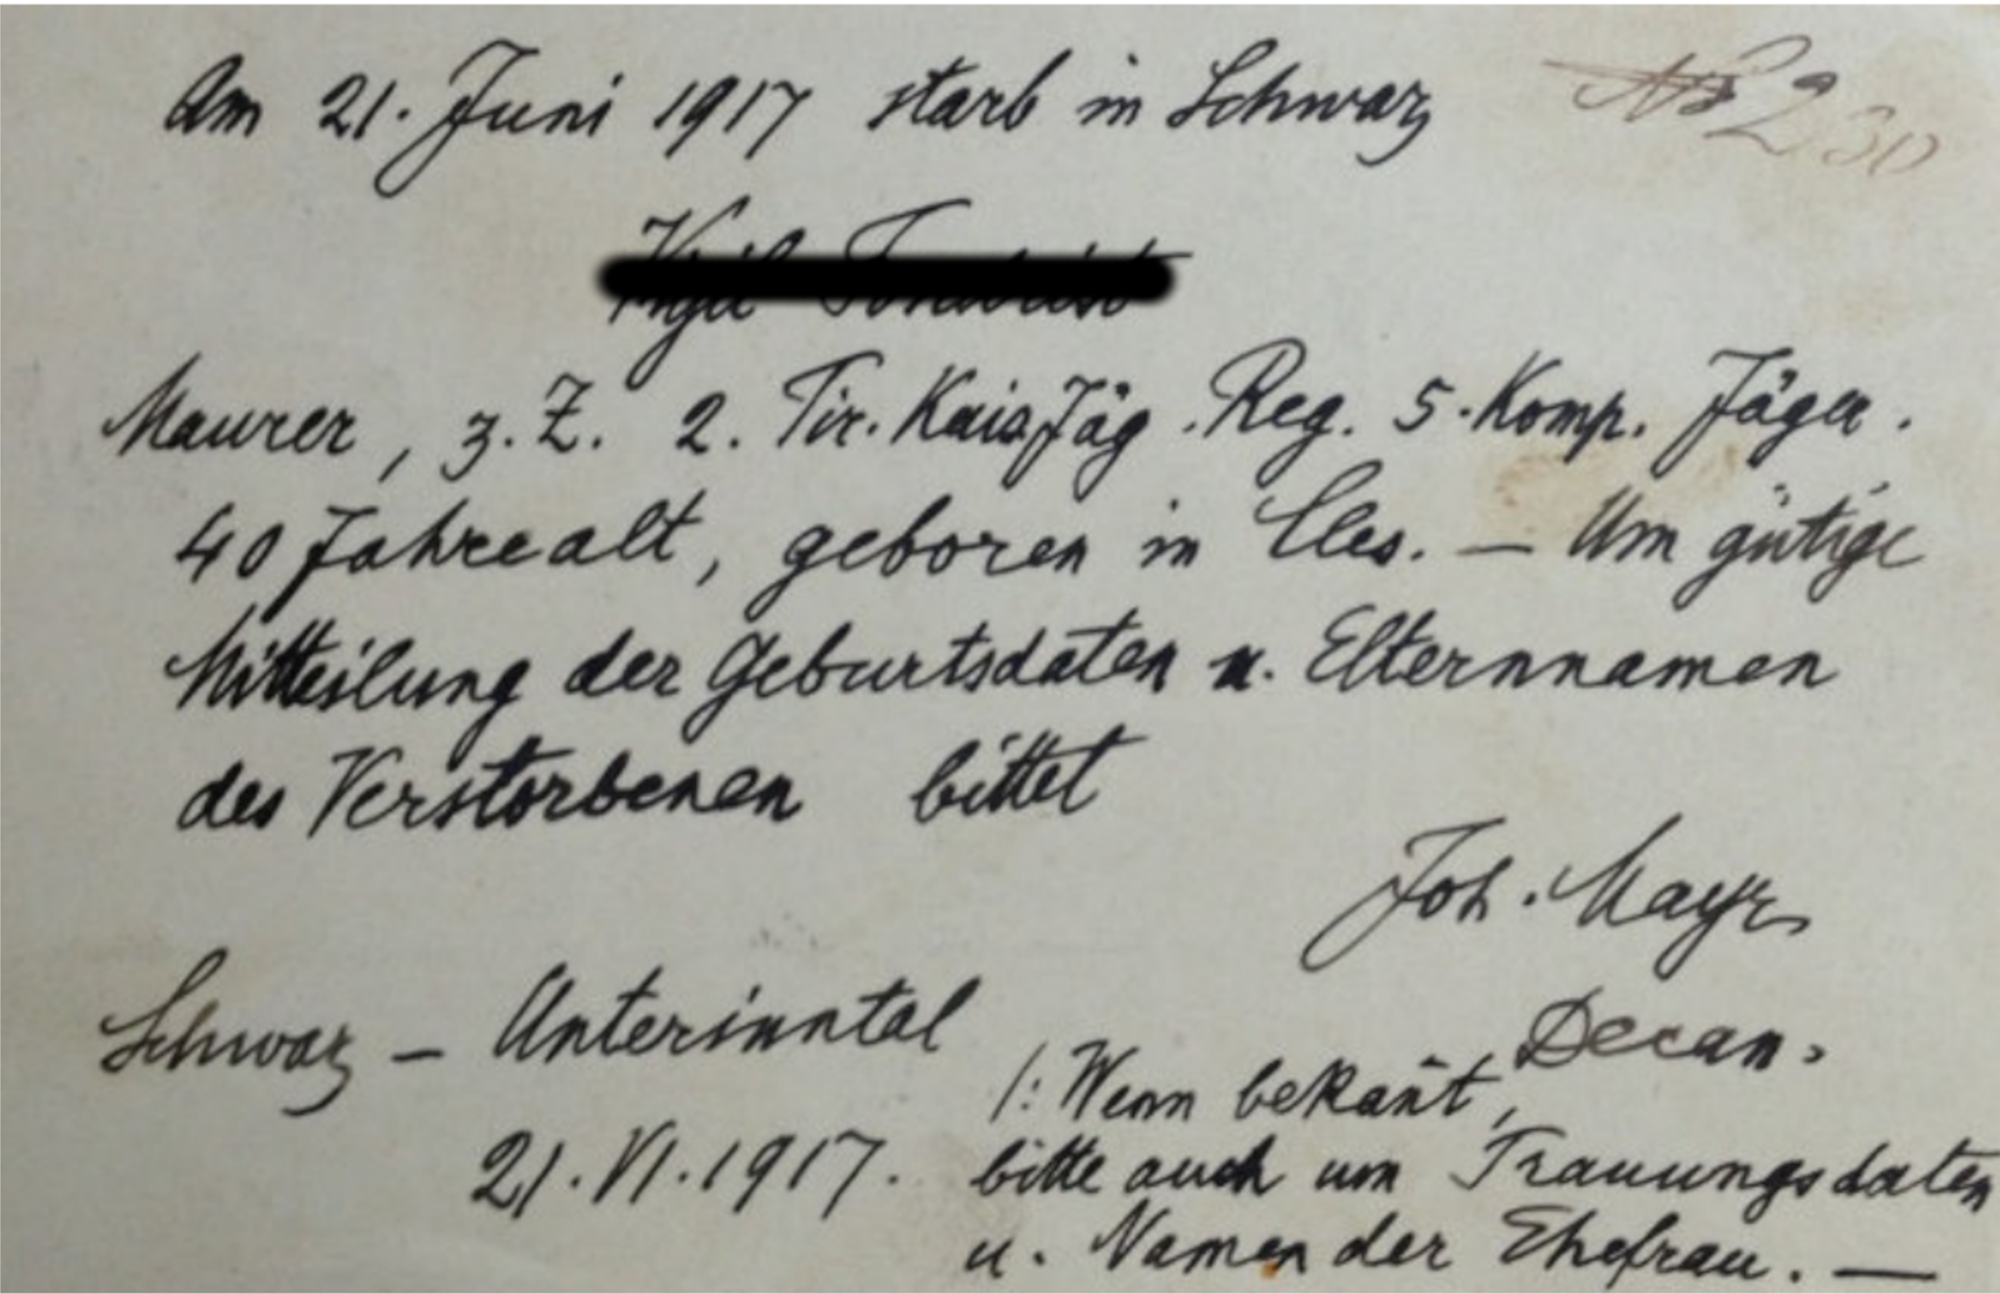 Am 21. Juni 1917 starb in Schwaz
230
Maurer, z. Z. 2. Tir. Kais. Jäg. Reg. 5. Komp. Jäger.
40 Jahre alt, geboren in Cles. — Um gütige
Mitteilung der Geburtsdaten u. Elternnamen
des Verstorbenen bittet
Joh. Mayr
Decan.
Schwaz – Unterinntal
21. VI. 1917.
/: Wenn bekañt,
bitte auch um Trauungsdaten
u. Namen der Ehefrau. —